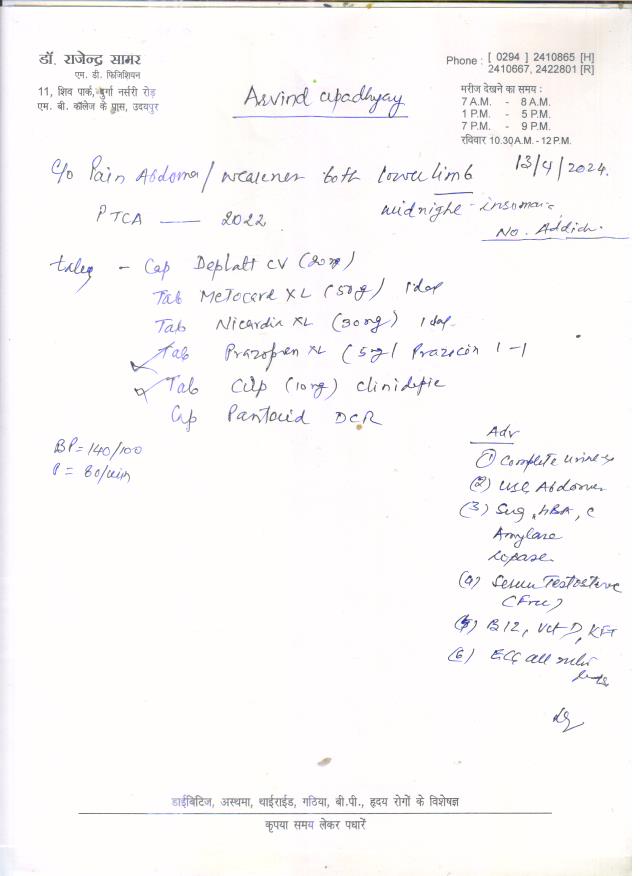 डॉ. राजेन्द्र सामर
एम. डी. फिजिशियन
11, शिव पार्क, दुर्गा नर्सरी रोड़
एम. बी. कॉलेज के पास, उदयपुर
Phone : [ 0294 ] 2410865 [H]
2410667, 2422801 [R]
मरीज देखने का समय :
7 A.M. - 8 A.M.
1 P.M. - 5 P.M.
7 P.M. - 9 P.M.
रविवार 10.30 A.M. - 12 P.M.
Arvind upadhyay
13/4/2024.
C/o Pain Abdomen / weakness both lower limb
PTCA — 2022
midnight - insomnia
No. Addict.
taking - Cap Deplatt CV (20mg)
Tab Metocard XL (50mg) 1 daily
Tab Nicardia XL (30mg) 1 daily
Tab Prazopren XL (5mg) Prazocin 1-1
Tab Cilp (10mg) clinidipine
Cap Pantocid DCR
BP = 140/100
P = 80/min
Adv
(1) Complete urine
(2) USG Abdomen
(3) Sug, HBA, C
Amylase
Lipase
(4) Serum Testosterone
(Free)
(5) B12, Vit D, KFT
(6) ECG all
डाईबिटिज, अस्थमा, थाईराईड, गठिया, बी.पी., हृदय रोगों के विशेषज्ञ
कृपया समय लेकर पधारें